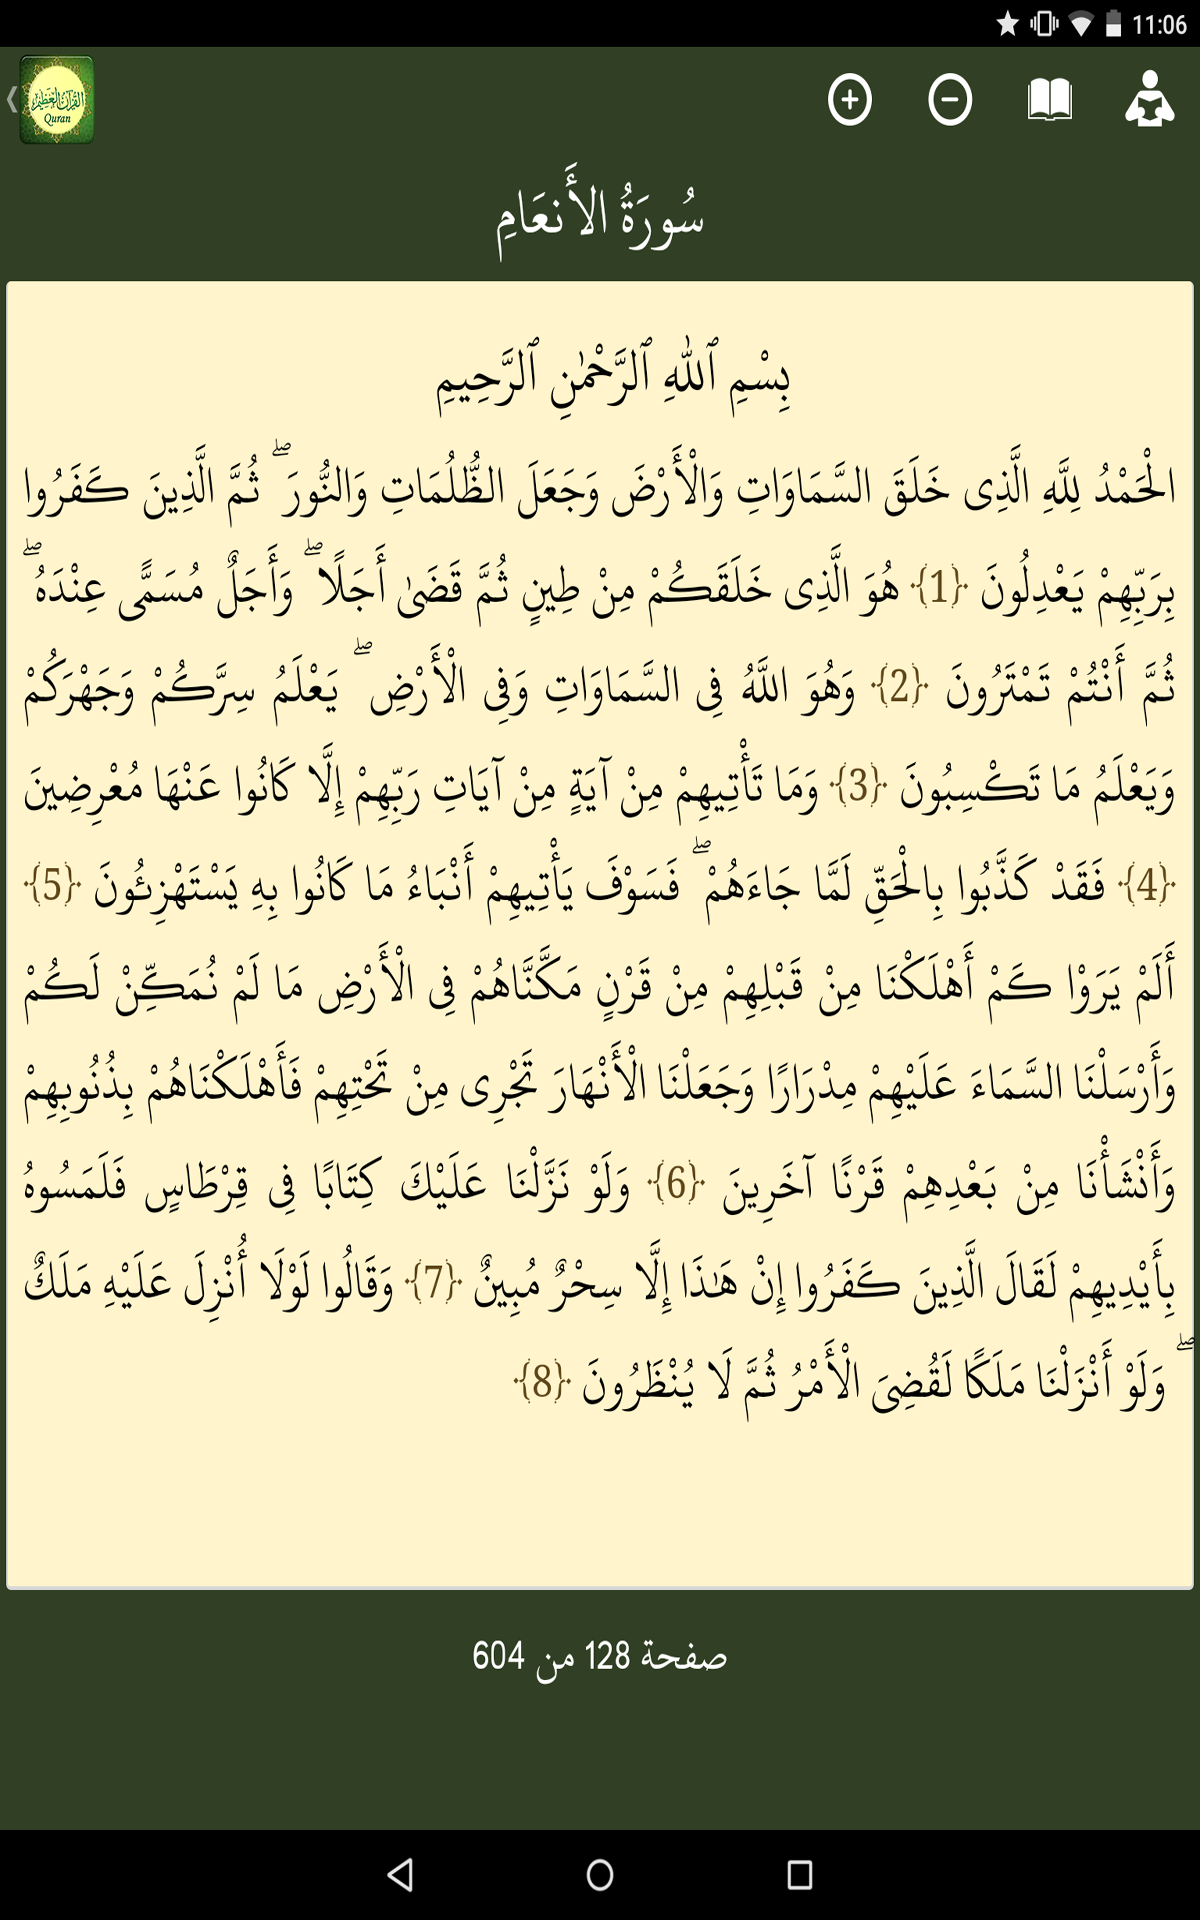 11:06
القرآن العظيم
Quran
سُورَةُ الأَنعَامِ
بِسْمِ ٱللهِ ٱلرَّحْمٰنِ ٱلرَّحِيمِ
الْحَمْدُ لِلَّهِ الَّذِى خَلَقَ السَّمَاوَاتِ وَالْأَرْضَ وَجَعَلَ الظُّلُمَاتِ وَالنُّورَ ۖ ثُمَّ الَّذِينَ كَفَرُوا
بِرَبِّهِمْ يَعْدِلُونَ {1} هُوَ الَّذِى خَلَقَكُمْ مِنْ طِينٍ ثُمَّ قَضَىٰ أَجَلًا ۖ وَأَجَلٌ مُسَمًّى عِنْدَهُ ۖ
ثُمَّ أَنْتُمْ تَمْتَرُونَ {2} وَهُوَ اللَّهُ فِى السَّمَاوَاتِ وَفِى الْأَرْضِ ۖ يَعْلَمُ سِرَّكُمْ وَجَهْرَكُمْ
وَيَعْلَمُ مَا تَكْسِبُونَ {3} وَمَا تَأْتِيهِمْ مِنْ آيَةٍ مِنْ آيَاتِ رَبِّهِمْ إِلَّا كَانُوا عَنْهَا مُعْرِضِينَ
{4} فَقَدْ كَذَّبُوا بِالْحَقِّ لَمَّا جَاءَهُمْ ۖ فَسَوْفَ يَأْتِيهِمْ أَنْبَاءُ مَا كَانُوا بِهِ يَسْتَهْزِئُونَ {5}
أَلَمْ يَرَوْا كَمْ أَهْلَكْنَا مِنْ قَبْلِهِمْ مِنْ قَرْنٍ مَكَّنَّاهُمْ فِى الْأَرْضِ مَا لَمْ نُمَكِّنْ لَكُمْ
وَأَرْسَلْنَا السَّمَاءَ عَلَيْهِمْ مِدْرَارًا وَجَعَلْنَا الْأَنْهَارَ تَجْرِى مِنْ تَحْتِهِمْ فَأَهْلَكْنَاهُمْ بِذُنُوبِهِمْ
وَأَنْشَأْنَا مِنْ بَعْدِهِمْ قَرْنًا آخَرِينَ {6} وَلَوْ نَزَّلْنَا عَلَيْكَ كِتَابًا فِى قِرْطَاسٍ فَلَمَسُوهُ
بِأَيْدِيهِمْ لَقَالَ الَّذِينَ كَفَرُوا إِنْ هَٰذَا إِلَّا سِحْرٌ مُبِينٌ {7} وَقَالُوا لَوْلَا أُنْزِلَ عَلَيْهِ مَلَكٌ
ۖ وَلَوْ أَنْزَلْنَا مَلَكًا لَقُضِىَ الْأَمْرُ ثُمَّ لَا يُنْظَرُونَ {8}
صفحة 128 من 604